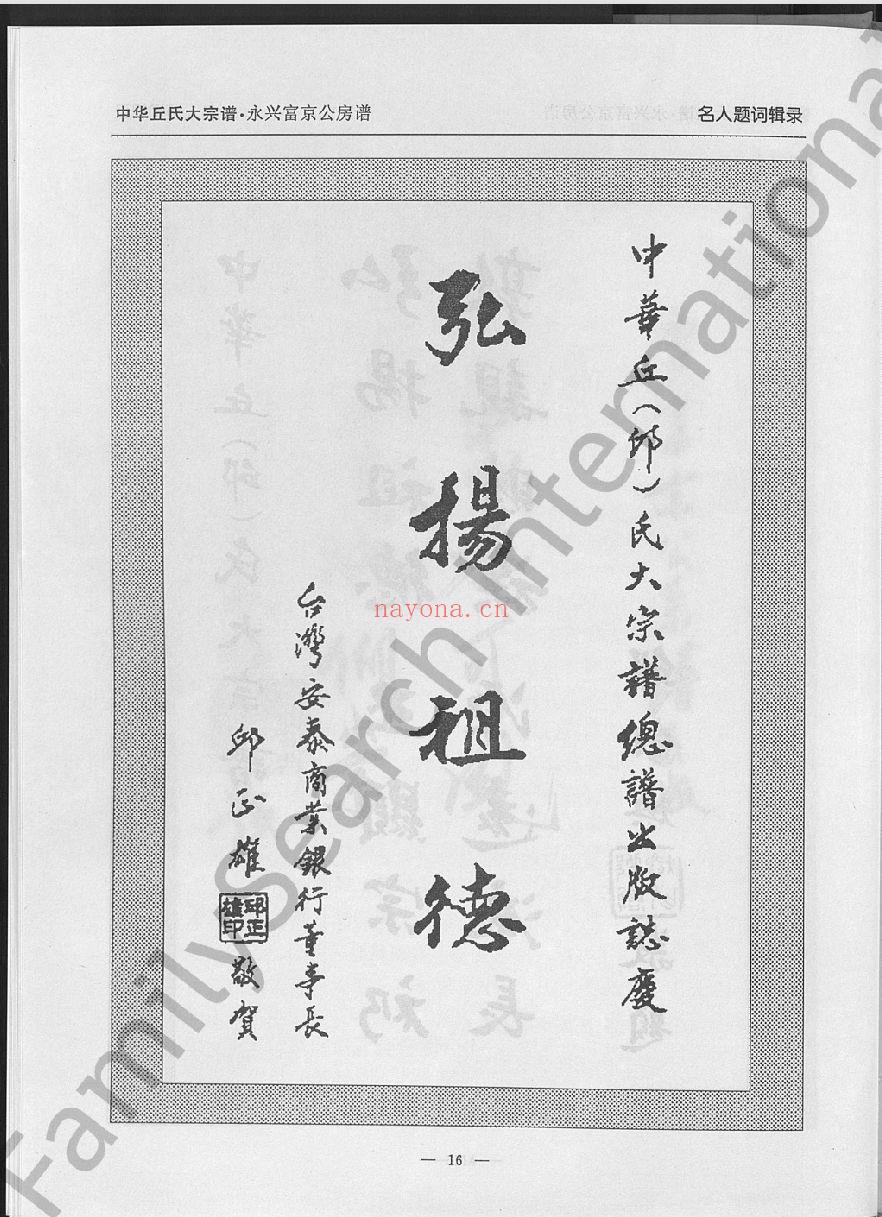 中华丘氏大宗谱·永兴富京公房谱
名人题词辑录
中華丘（邱）氏大宗譜總譜出版誌慶
弘揚祖德
台灣安泰商業銀行董事長
邱正雄
邱正雄印
敬賀
— 16 —
nayona.cn
FamilySearch International